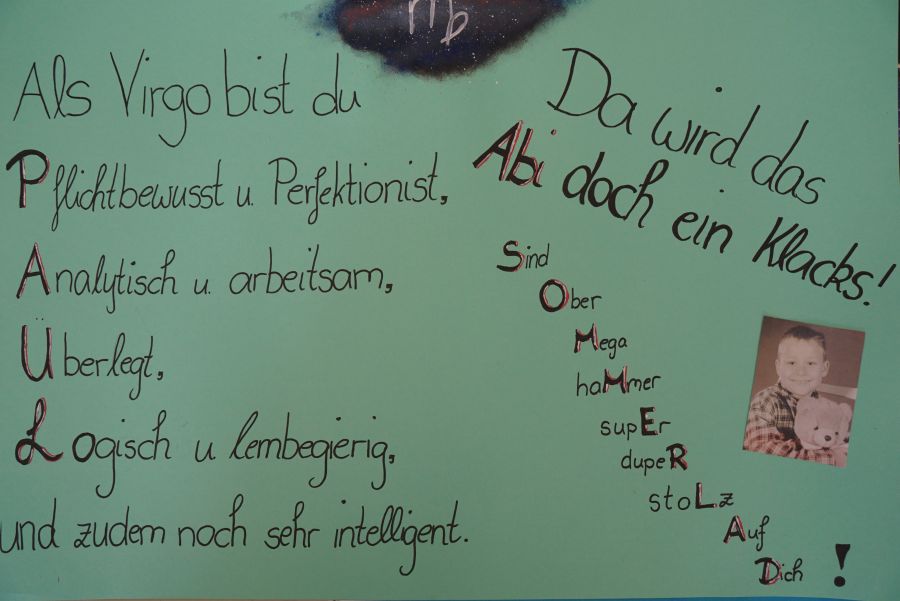 Als Virgo bist du
Pflichtbewusst u. Perfektionist,
Analytisch u. arbeitsam,
Überlegt,
Logisch u lernbegierig,
und zudem noch sehr intelligent.
Da wird das
Abi doch ein Klacks!
Sind
Ober
Mega
haMmer
supEr
dupeR
stoLz
Auf
Dich !